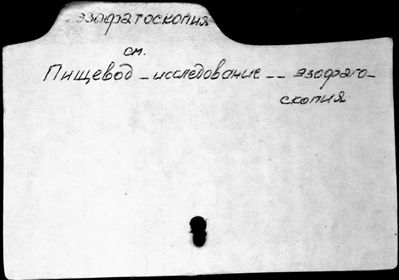 эзофагоскопия
см.
Пищевод - исследование -- эзофаго-
скопия